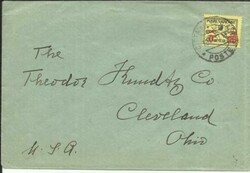 The
Theodor Kundtz Co
Cleveland
Ohio
U.S.A.
POSTE